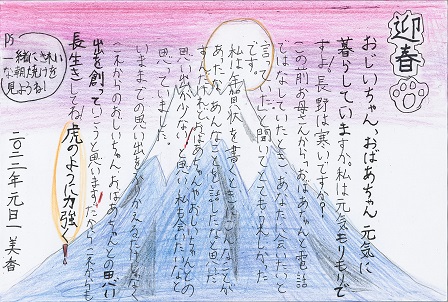 迎春
おじいちゃん、おばあちゃん元気に
暮らしていますか。私は元気もりもりで
すよ。長野は寒いですか？
この前お母さんから、おばあちゃんと電話
ではなしていたとき、あなたに会いたいと
言っていたと聞いてとてもうれしかった
です。
私は年賀状を書くときに、こんなことが
あったな、あんなことを話したなと思った
んだけれどおばあちゃんやおじいちゃんとの
思い出が少ない！と思い私も会いたいなと
思っていました。
いままでの思い出をふりかえるだけでなく
これからのおじいちゃん、おばあちゃんとの思い
出を創っていこうと思います！だから、これからも
長生きしてね！虎のように力強く！
二〇二二年元旦 美香
PS
一緒にきれい
な朝焼けを
見ようね！